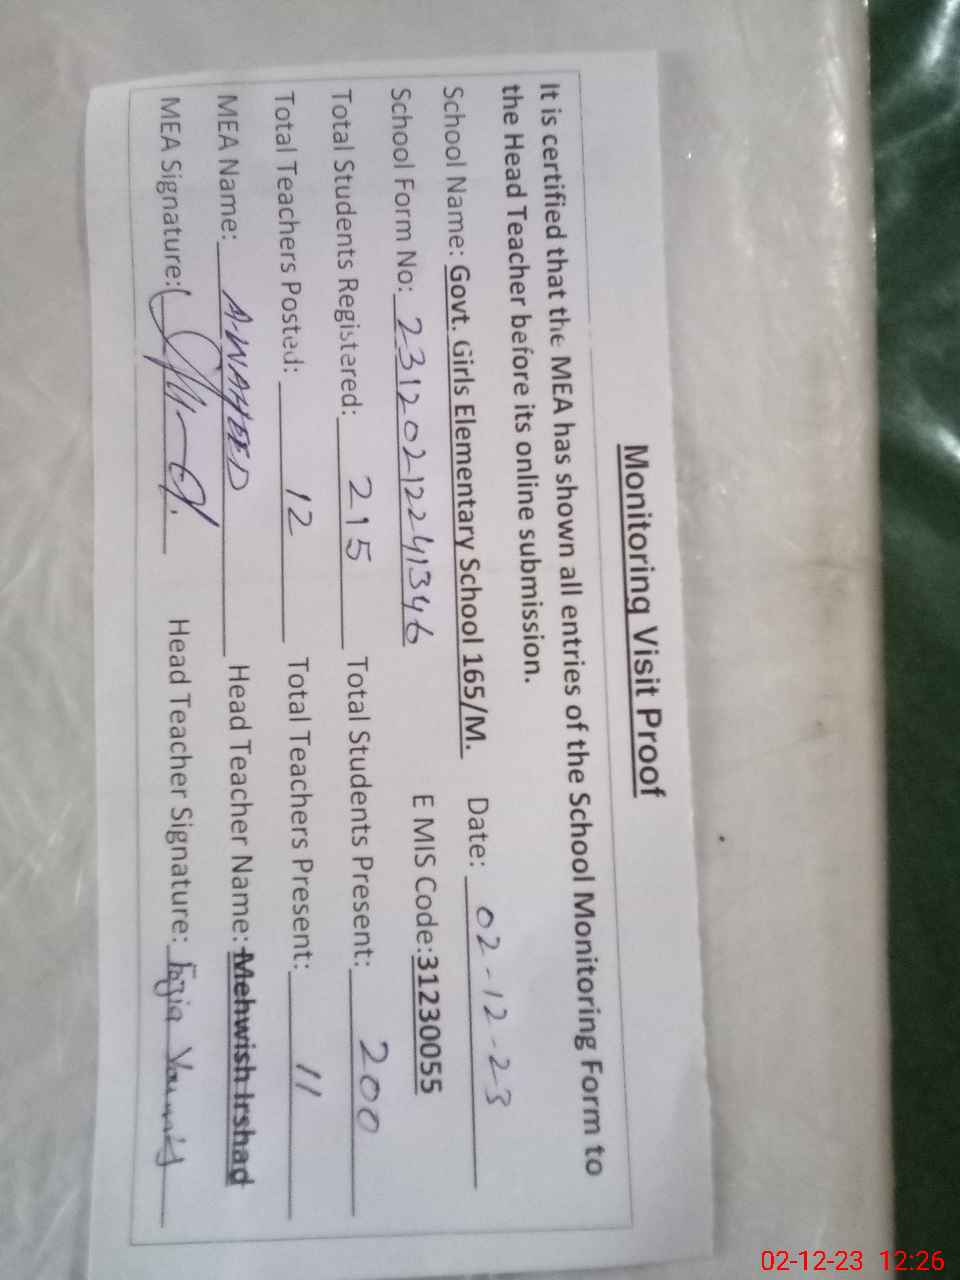 Monitoring Visit Proof
It is certified that the MEA has shown all entries of the School Monitoring Form to
the Head Teacher before its online submission.
School Name: Govt. Girls Elementary School 165/M. Date: 02-12-23
School Form No: 23120212241346 E MIS Code:31230055
Total Students Registered: 215 Total Students Present: 200
Total Teachers Posted: 12 Total Teachers Present: 11
MEA Name: A-WAHEED Head Teacher Name: Mehwish Irshad
MEA Signature: Head Teacher Signature: Fozia
02-12-23 12:26